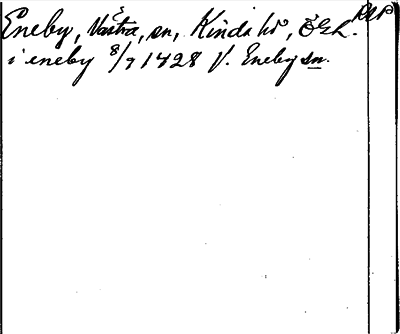 Eneby, Västra, sn, Kinda hd, ÖGL. RAP
i eneby 8/7 1428 V. Eneby sn.